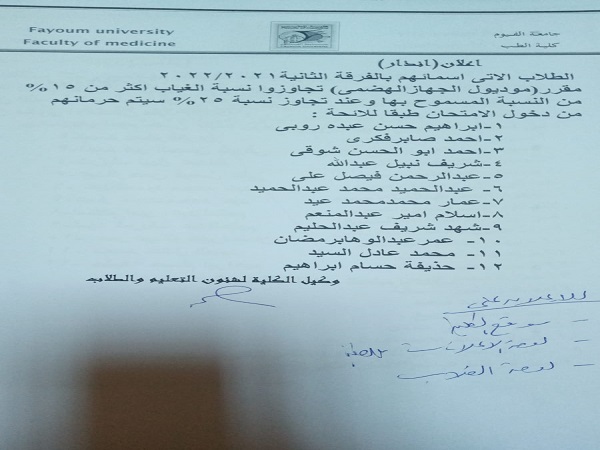 Fayoum university
Faculty of medicine
جامعة الفيوم
كلية الطب
اعلان(انذار)
الطلاب الاتى اسمائهم بالفرقة الثانية ٢٠٢٢/٢٠٢١
مقرر(موديول الجهازالهضمى) تجاوزوا نسبة الغياب اكثر من ١٥%
من النسبة المسموح بها وعند تجاوز نسبة ٢٥% سيتم حرمانهم
من دخول الامتحان طبقا للائحة :
١-ابراهيم حسن عبده روبى
٢-احمد صابرفكرى
٣-احمد ابو الحسن شوقى
٤-شريف نبيل عبدالله
٥-عبدالرحمن فيصل على
٦- عبدالحميد محمد عبدالحميد
٧-عمار محمدمحمد عيد
٨-اسلام امير عبدالمنعم
٩-شهد شريف عبدالحليم
١٠- عمر عبدالوهابرمضان
١١- محمد عادل السيد
١٢- حذيفة حسام ابراهيم
وكيل الكلية لشئون التعليم والطلاب
- لوحة الاعلانات
- لوحة الطلاب